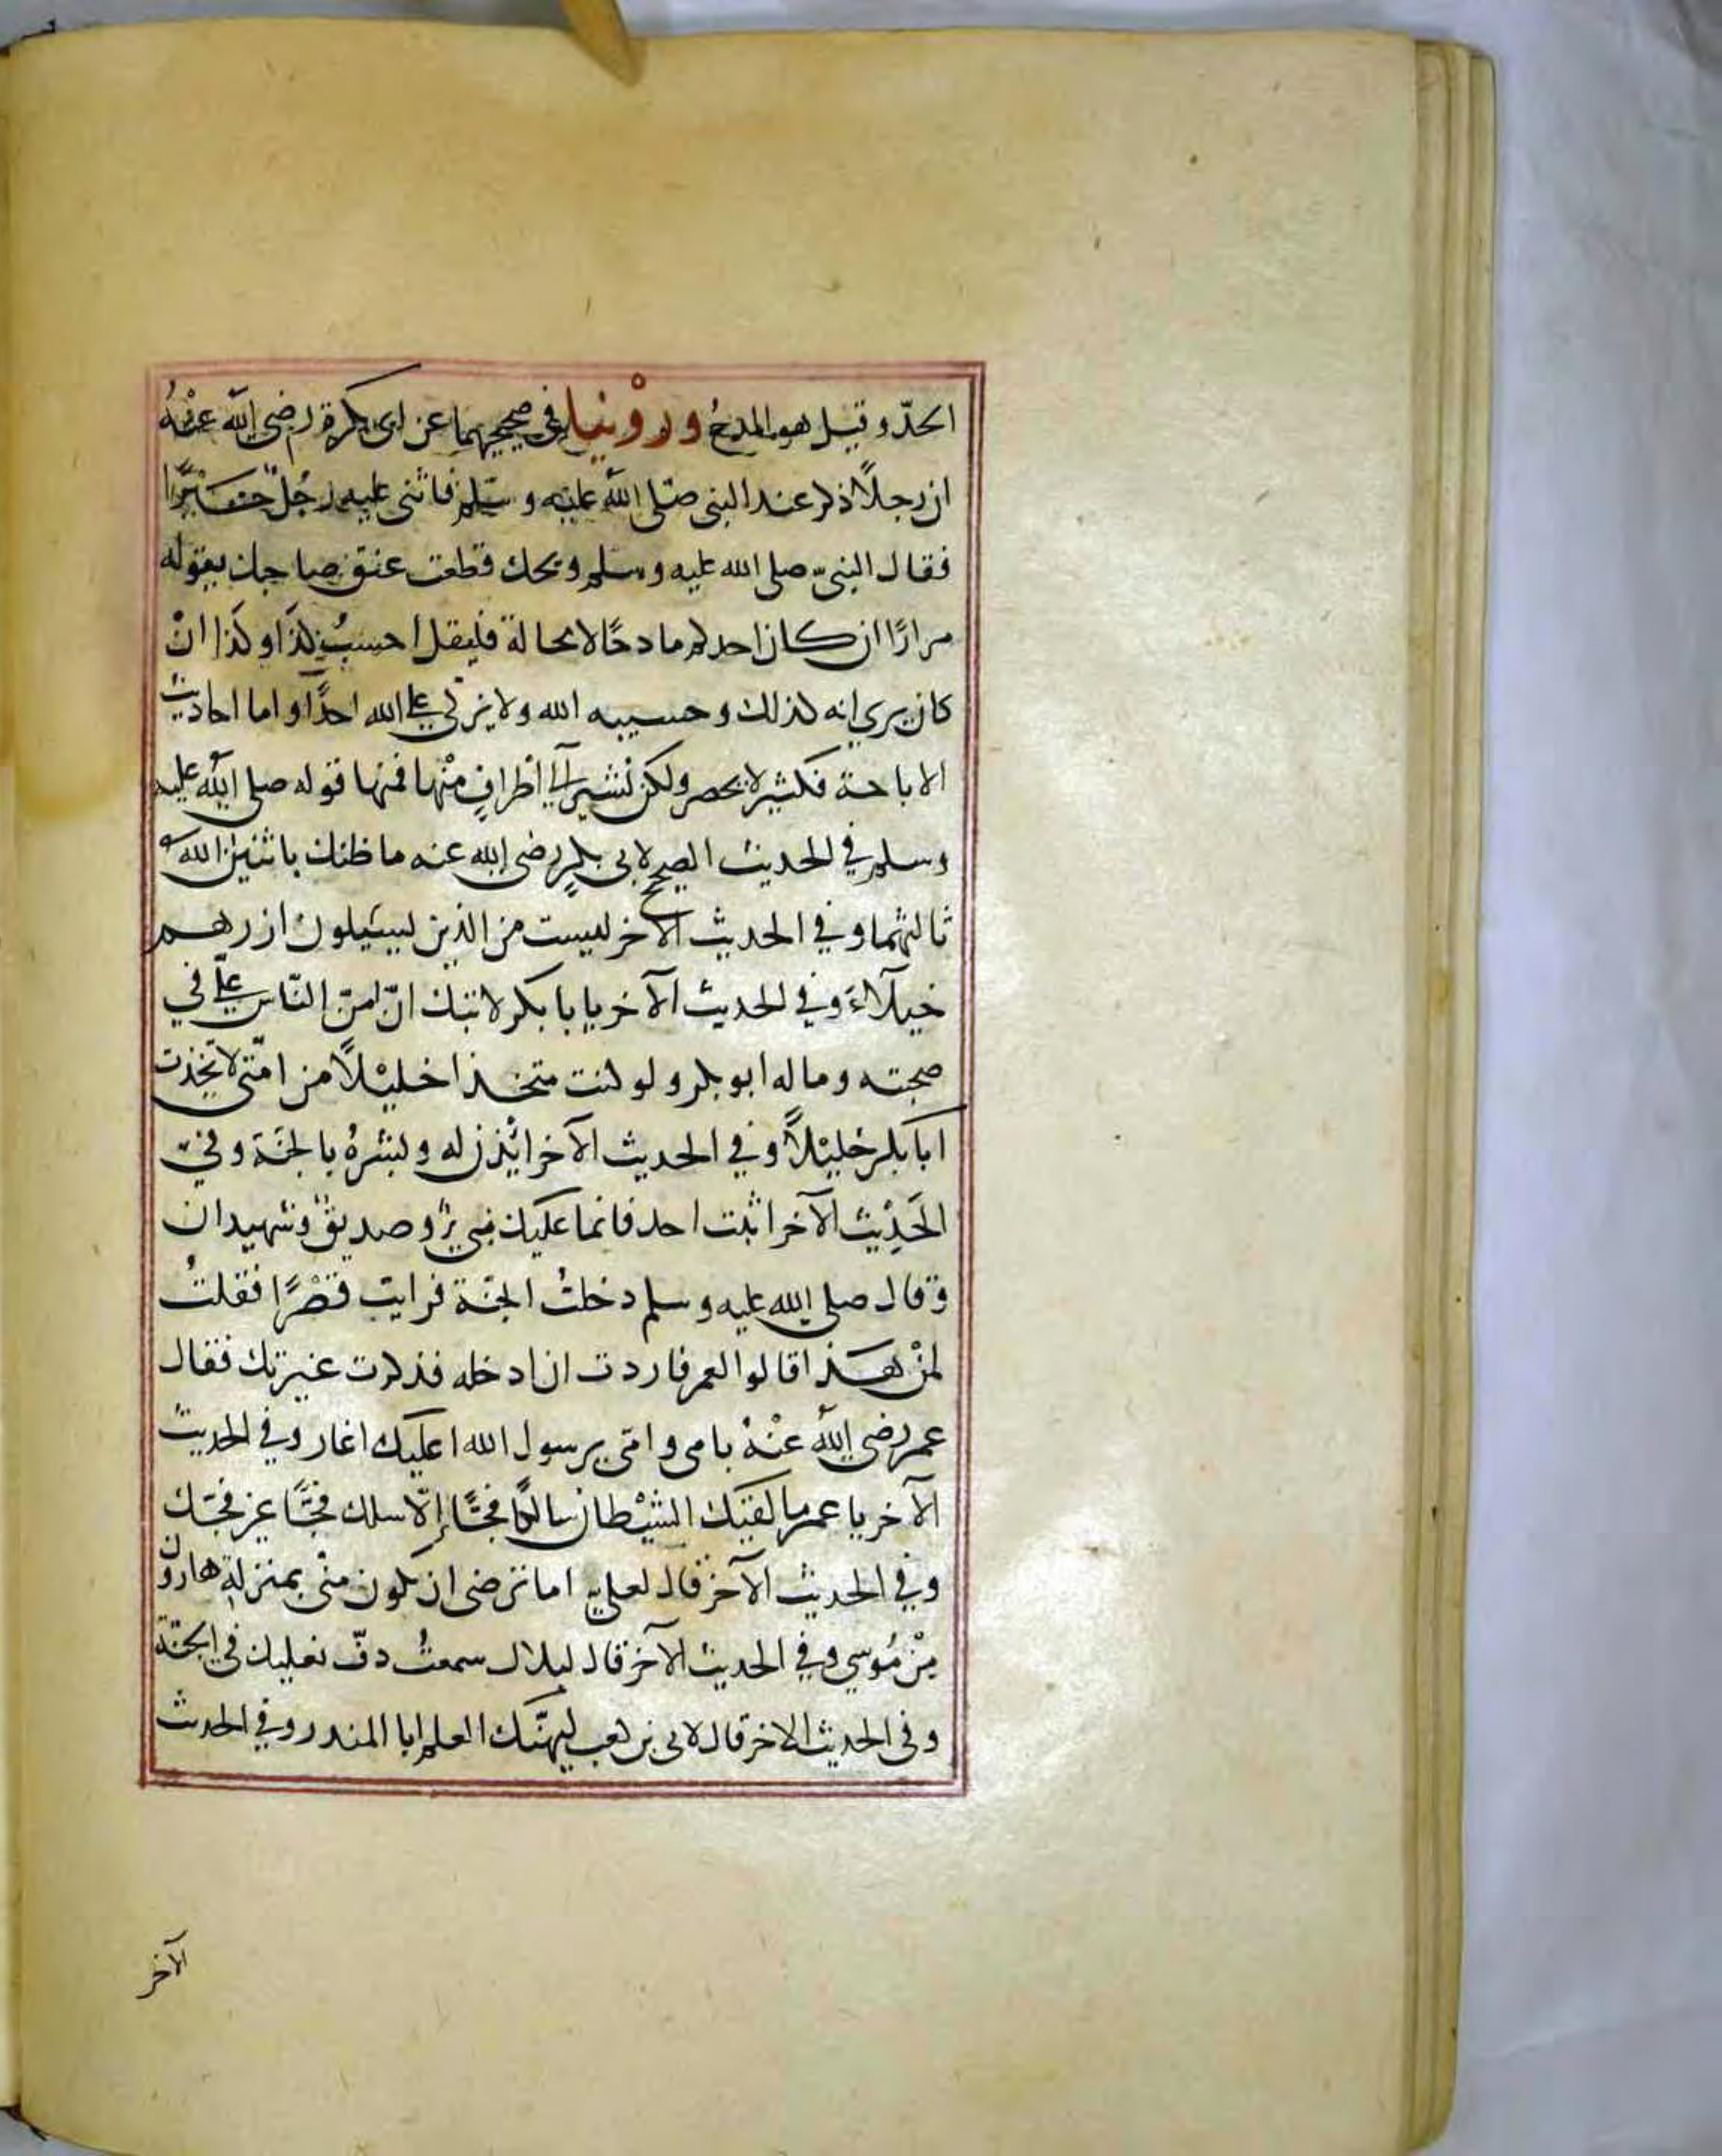 الحدّ وقيل هو المدحُ وروْينا في صحيحيهما عن ابى بكرة رضى اللّٰه عنْهُ
ان رجلاً ذكر عند النبى صلّى اللّٰه عليْه وسلّم فاثنى عليه رجُلٌ خيْرًا
فقال النبىّ صلى الله عليه وسلم ويحك قطعت عنق صاحبك يقوله
مرارًا ان كان احدكم مادحًا لا محالة فليقل احسبُ كذا وكذا انْ
كان يرى انه كذلك وحسيبه الله ولا يزكى على الله احدًا واما احاديث
الاباحة فكثير لا يحصر ولكن نُشير الى أطرافٍ منْها فمنها قوله صلى اللّٰه عليه
وسلم في الحديث الصحيح لابى بكرٍ رضى الله عنه ما ظنك باثنين اللّٰه
ثالثهما وفي الحديث الآخر لست من الذين يسبلون ازرهم
خيلآءَ وفي الحديث الآخر يا با بكر لا تبك انّ امنّ النّاس علىّ في
صحبته وماله ابو بكر ولو كنت متخذا خليْلاً من امّتى لاتّخذت
ابا بكر خليْلاً وفي الحديث الآخر ائْذن له وبشرهُ بالجنّة وفي
الحَدِيْث الآخر اثبت احد فانما عليك نبىٌّ وصديقٌ وشهيدان
وقال صلى الله عليه وسلم دخلتُ الجنّة فرايت قصْرًا فقلتُ
لمنْ هذا قالوا لعمر فاردت ان ادخله فذكرت غيرتك فقال
عمر رضى اللّٰه عنْهُ بابى وامّى يرسول الله اعليك اغار وفي الحديث
الآخر يا عمر ما لقيك الشيْطان سالكًا فجًّا إلاّ سلك فجًّا غير فجّك
وفي الحديث الآخر قال لعلي اما ترضى ان تكون منّى بمنزلة هارون
مِنْ مُوسى وفي الحديث الآخر قال لبلال سمعتُ دفّ نعليك في الجنّة
وفى الحديث الاخر قال لابى بن كعب ليهنّك العلم ابا المنذر وفي الحديث
الآخر